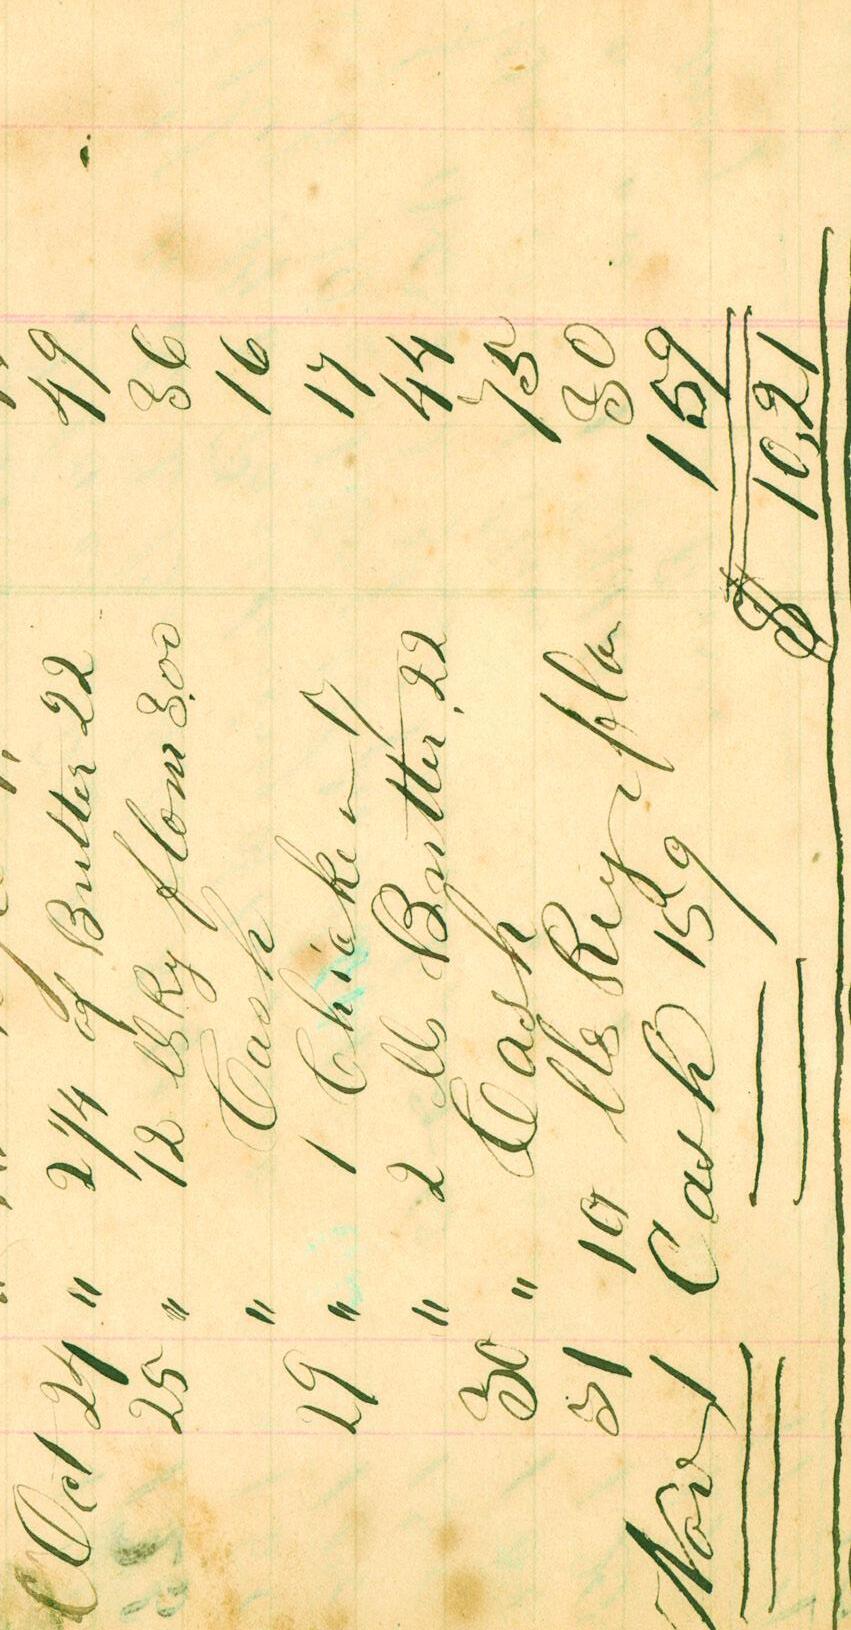 Oct 24 " 2 1/4 of Butter 22 49
25 " 12 lb Ry flour 3.00 36
" Cash 16
29 " 1 Chicken 17 17
" 2 lb Butter .22 44
30 " Cash 75
31 10 lbs Rey flou 30
Nov 1 Cash 159 159
$ 10,21